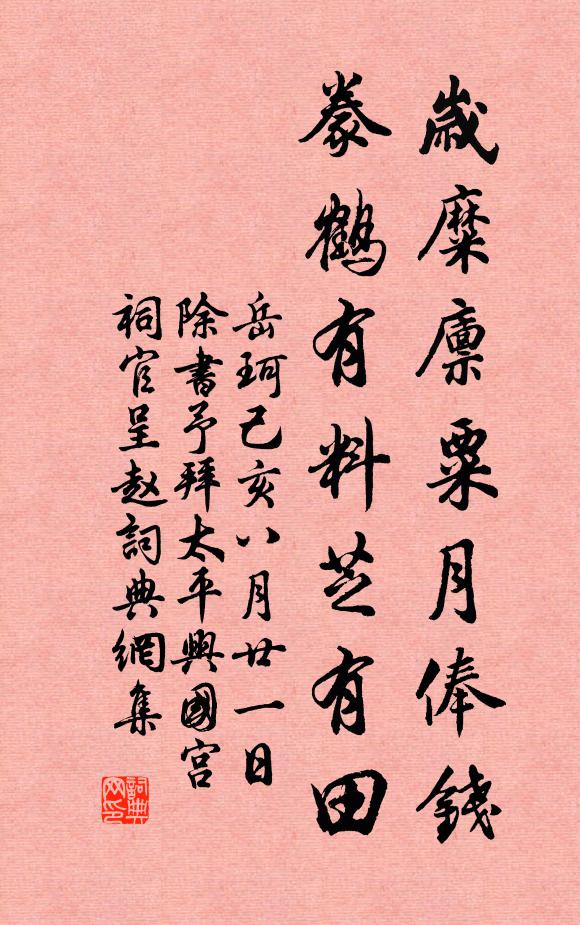 歲糜廩粟月俸錢
豢鶴有料芝有田
岳珂己亥八月廿一日
除書予拜太平興國宮
祠官呈趙詞典網集
詞典網印